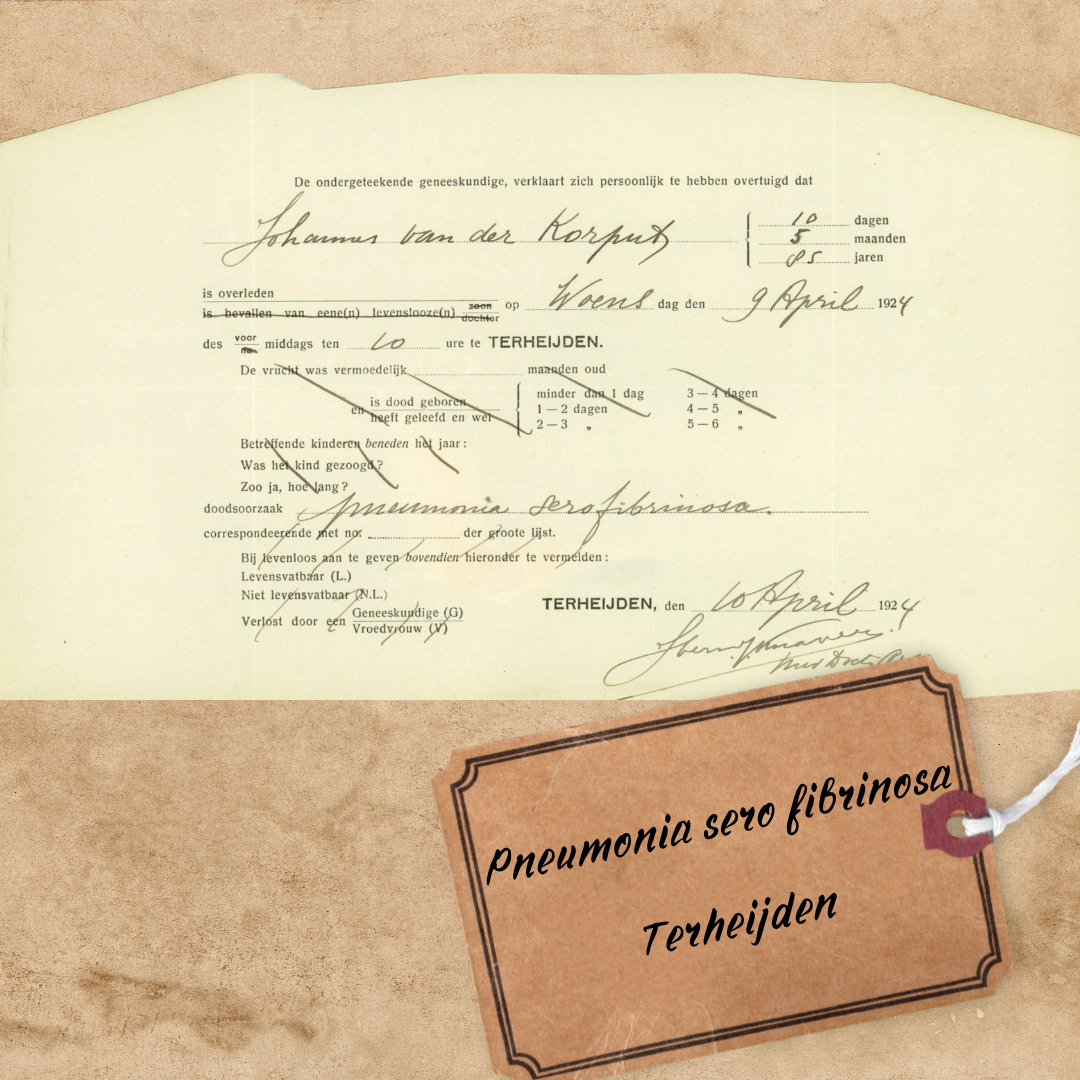 De ondergeteekende geneeskundige, verklaart zich persoonlijk te hebben overtuigd dat
Johannes van der Korput
10 dagen
5 maanden
85 jaren
is overleden
is bevallen van eene(n) levenslooze(n) zoon dochter
op Woensdag den 9 April 1924
des voor na middags ten 10 ure te TERHEIJDEN.
De vrucht was vermoedelijk maanden oud
en is dood geboren
heeft geleefd en wel
minder dan 1 dag 3—4 dagen
1—2 dagen 4—5 „
2—3 „ 5—6 „
Betreffende kinderen beneden het jaar:
Was het kind gezoogd?
Zoo ja, hoe lang?
doodsoorzaak pneumonia sero fibrinosa.
correspondeerende met no: der groote lijst.
Bij levenloos aan te geven bovendien hieronder te vermelden:
Levensvatbaar (L.)
Niet levensvatbaar (N.L.)
Verlost door een Geneeskundige (G)
Vroedvrouw (V)
TERHEIJDEN, den 10 April 1924
Pneumonia sero fibrinosa
Terheijden